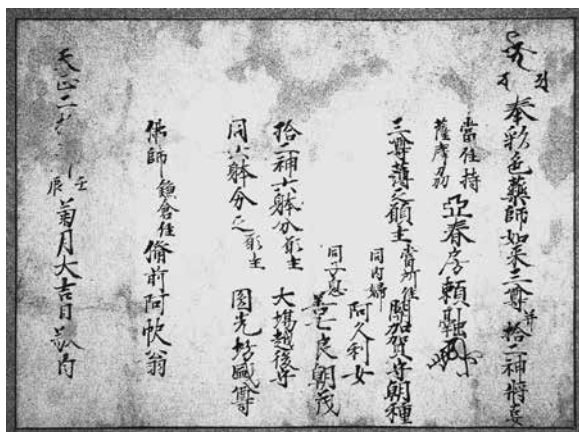 奉彩色薬師如来三尊并拾二神將
當住持
薩摩
亞春房頼融
三尊薄之願主
當所住
關加賀守朝種
同内婦
阿久利女
善七良朝茂
拾二神六躰分願主 大場越後守
同六躰分之願主 圓光坊盛尊
佛師鎌倉住備前阿
天正二
壬辰
菊月大吉日